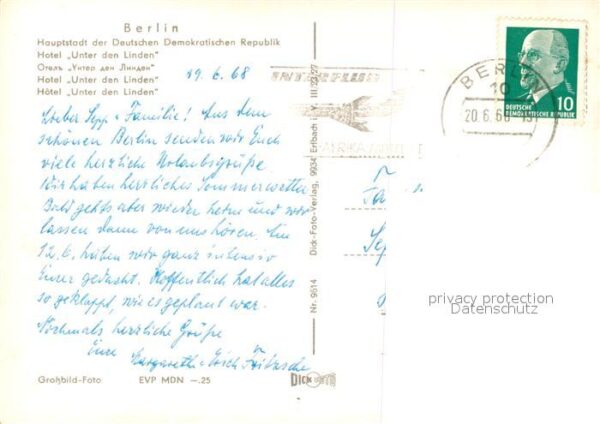 Berlin
Hauptstadt der Deutschen Demokratischen Republik
Hotel „Unter den Linden"
Отель „Унтер ден Линден"
Hotel „Unter den Linden"
Hôtel „Unter den Linden"
19. 6. 68
Lieber Sepp + Familie! Aus dem
schönen Berlin senden wir Euch
viele herzliche Urlaubsgrüße.
Wir haben herrliches Sommerwetter
Bald gehts aber wieder heim und wir
lassen dann von uns hören. Am
12. 6. haben wir ganz intensiv
Eurer gedacht. Hoffentlich hat alles
so geklappt, wie es geplant war.
Nochmals herzliche Grüße
Eure
Margareth + Erich Fritzsche
Großbild-Foto EVP MDN —.25
DICK
Nr. 9614 Dick-Foto-Verlag, 9934 Erlbach i. V. III/23/27
INTERFLUG
AFRIKA
BERLIN
10
20. 6. 68
DEUTSCHE
DEMOKRATISCHE REPUBLIK
10
Fa
Sep
privacy protection
Datenschutz